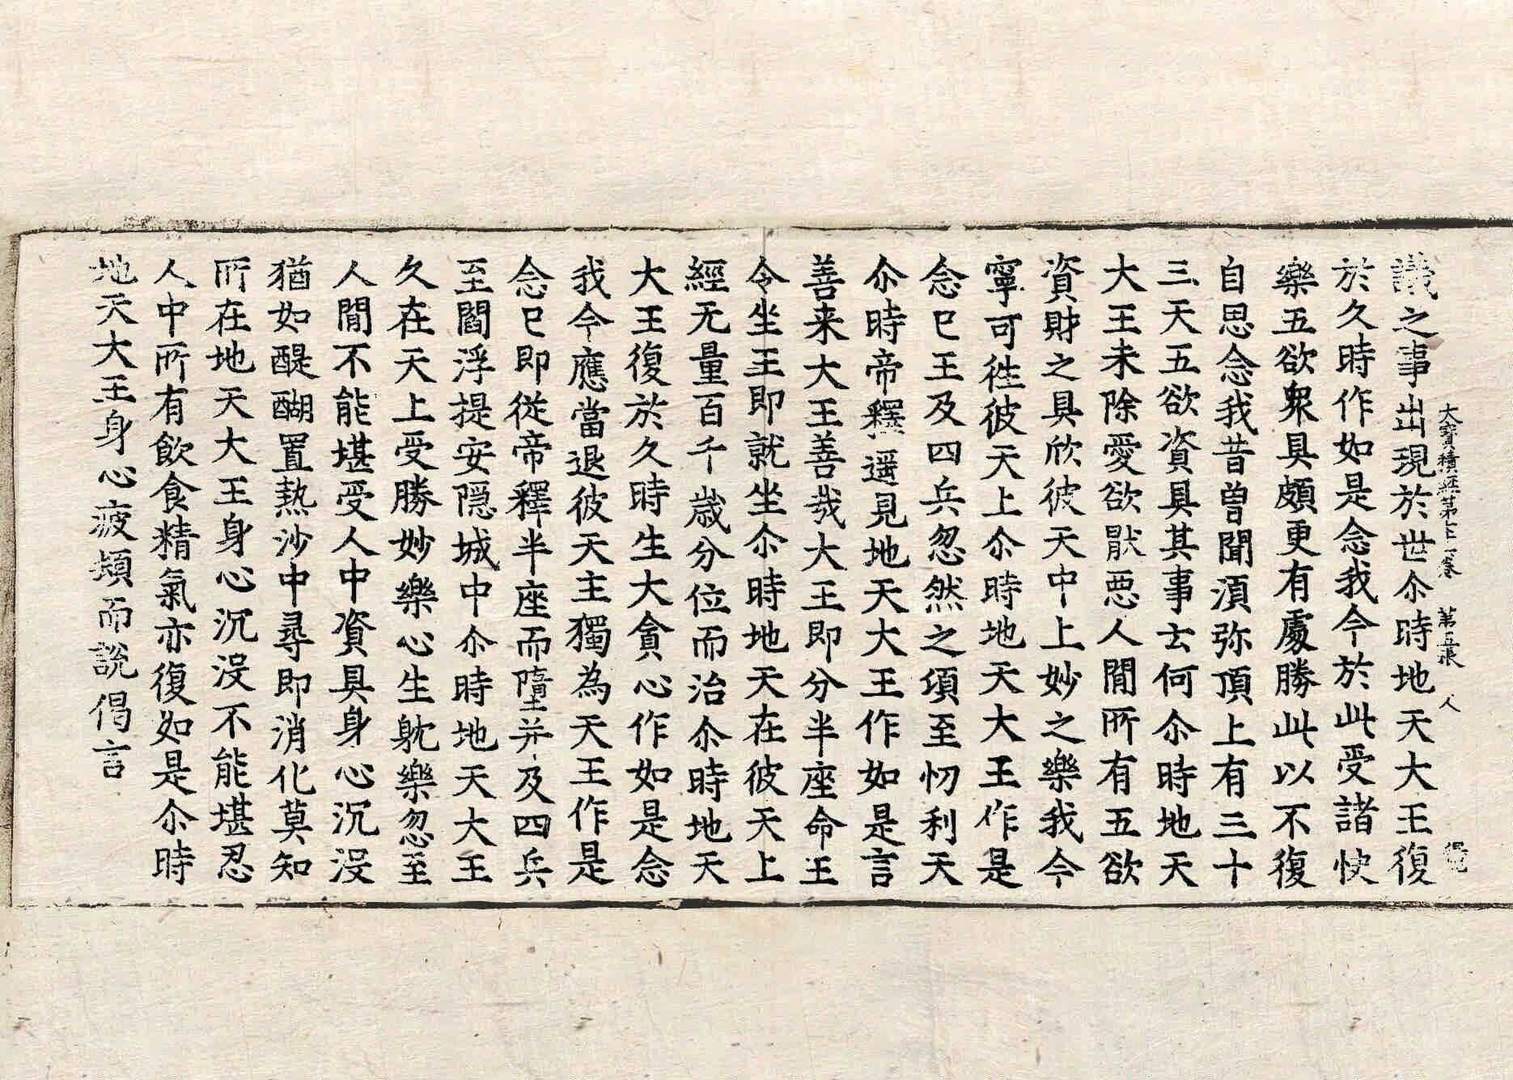 大寶積經第七十一卷 第五張 人
議之事出現於世尒時地天大王復
於久時作如是念我今於此受諸快
樂五欲衆具頗更有處勝此以不復
自思念我昔曾聞湏弥頂上有三十
三天五欲資具其事云何尒時地天
大王未除愛欲猒惡人閒所有五欲
資財之具欣彼天中上妙之樂我今
寧可徃彼天上尒時地天大王作是
念已王及四兵忽然之頃至忉利天
尒時帝釋遥見地天大王作如是言
善来大王善哉大王即分半座命王
令坐王即就坐尒時地天在彼天上
經无量百千歲分位而治尒時地天
大王復於久時生大貪心作如是念
我今應當退彼天主獨為天王作是
念已即從帝釋半座而墮并及四兵
至閻浮提安隱城中尒時地天大王
久在天上受勝妙樂心生躭樂忽至
人閒不能堪受人中資具身心沉沒
猶如醍醐置熱沙中尋即消化莫知
所在地天大王身心沉沒不能堪忍
人中所有飲食精氣亦復如是尒時
地天大王身心疲頓而說偈言